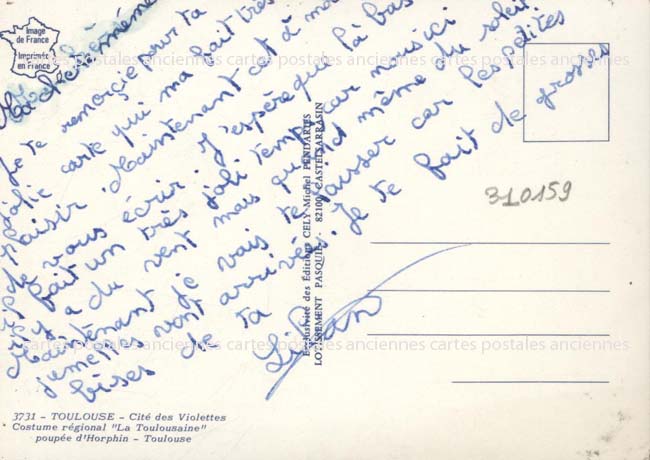 Image
de France
Imprimée
en France
Ma chère mémé
Je te remercie pour ta
jolie carte qui ma fait très
plaisir. Maintenant cet à moi
de vous écrire. J'espère que là bas
il fait un très joli temps car nous ici
il y a du vent mais quand même du soleil.
Maintenant je vais te laisser car les petites
jumelles vont arrivés. Je te fait de grosses
bises de ta
Lilian
310159
Exclusivité des Éditions CELY-Michel PENDARIES
LOTISSEMENT PASQUIE - 82100 CASTELSARRASIN
3731 - TOULOUSE - Cité des Violettes
Costume régional "La Toulousaine"
poupée d'Horphin - Toulouse
cartes postales anciennes cartes postales anciennes cartes postales anciennes
cartes postales anciennes cartes postales anciennes cartes postales anciennes